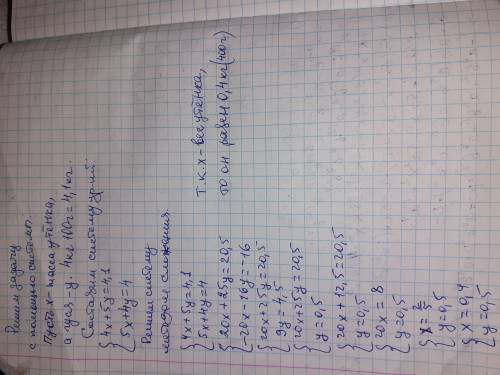 Решим задачу
с помощью системы.
Пусть x - масса утёнка,
а гуся - y. 4кг 100г = 4,1кг.
Составим систему ур-ий:
{4x+5y=4,1
{5x+4y=4
Решим систему
методом сложения.
{4x+5y=4,1
{5x+4y=4
{20x+25y=20,5
{-20x-16y=-16
{20x+25y=20,5
{9y=4,5
{20x+25y=20,5
{y=0,5
{20x+12,5=20,5
{y=0,5
{20x=8
{y=0,5
{x=2/5
{y=0,5
{x=0,4
{y=0,5
Т.к. x - вес утёнка,
то он равен 0,4кг(400г)